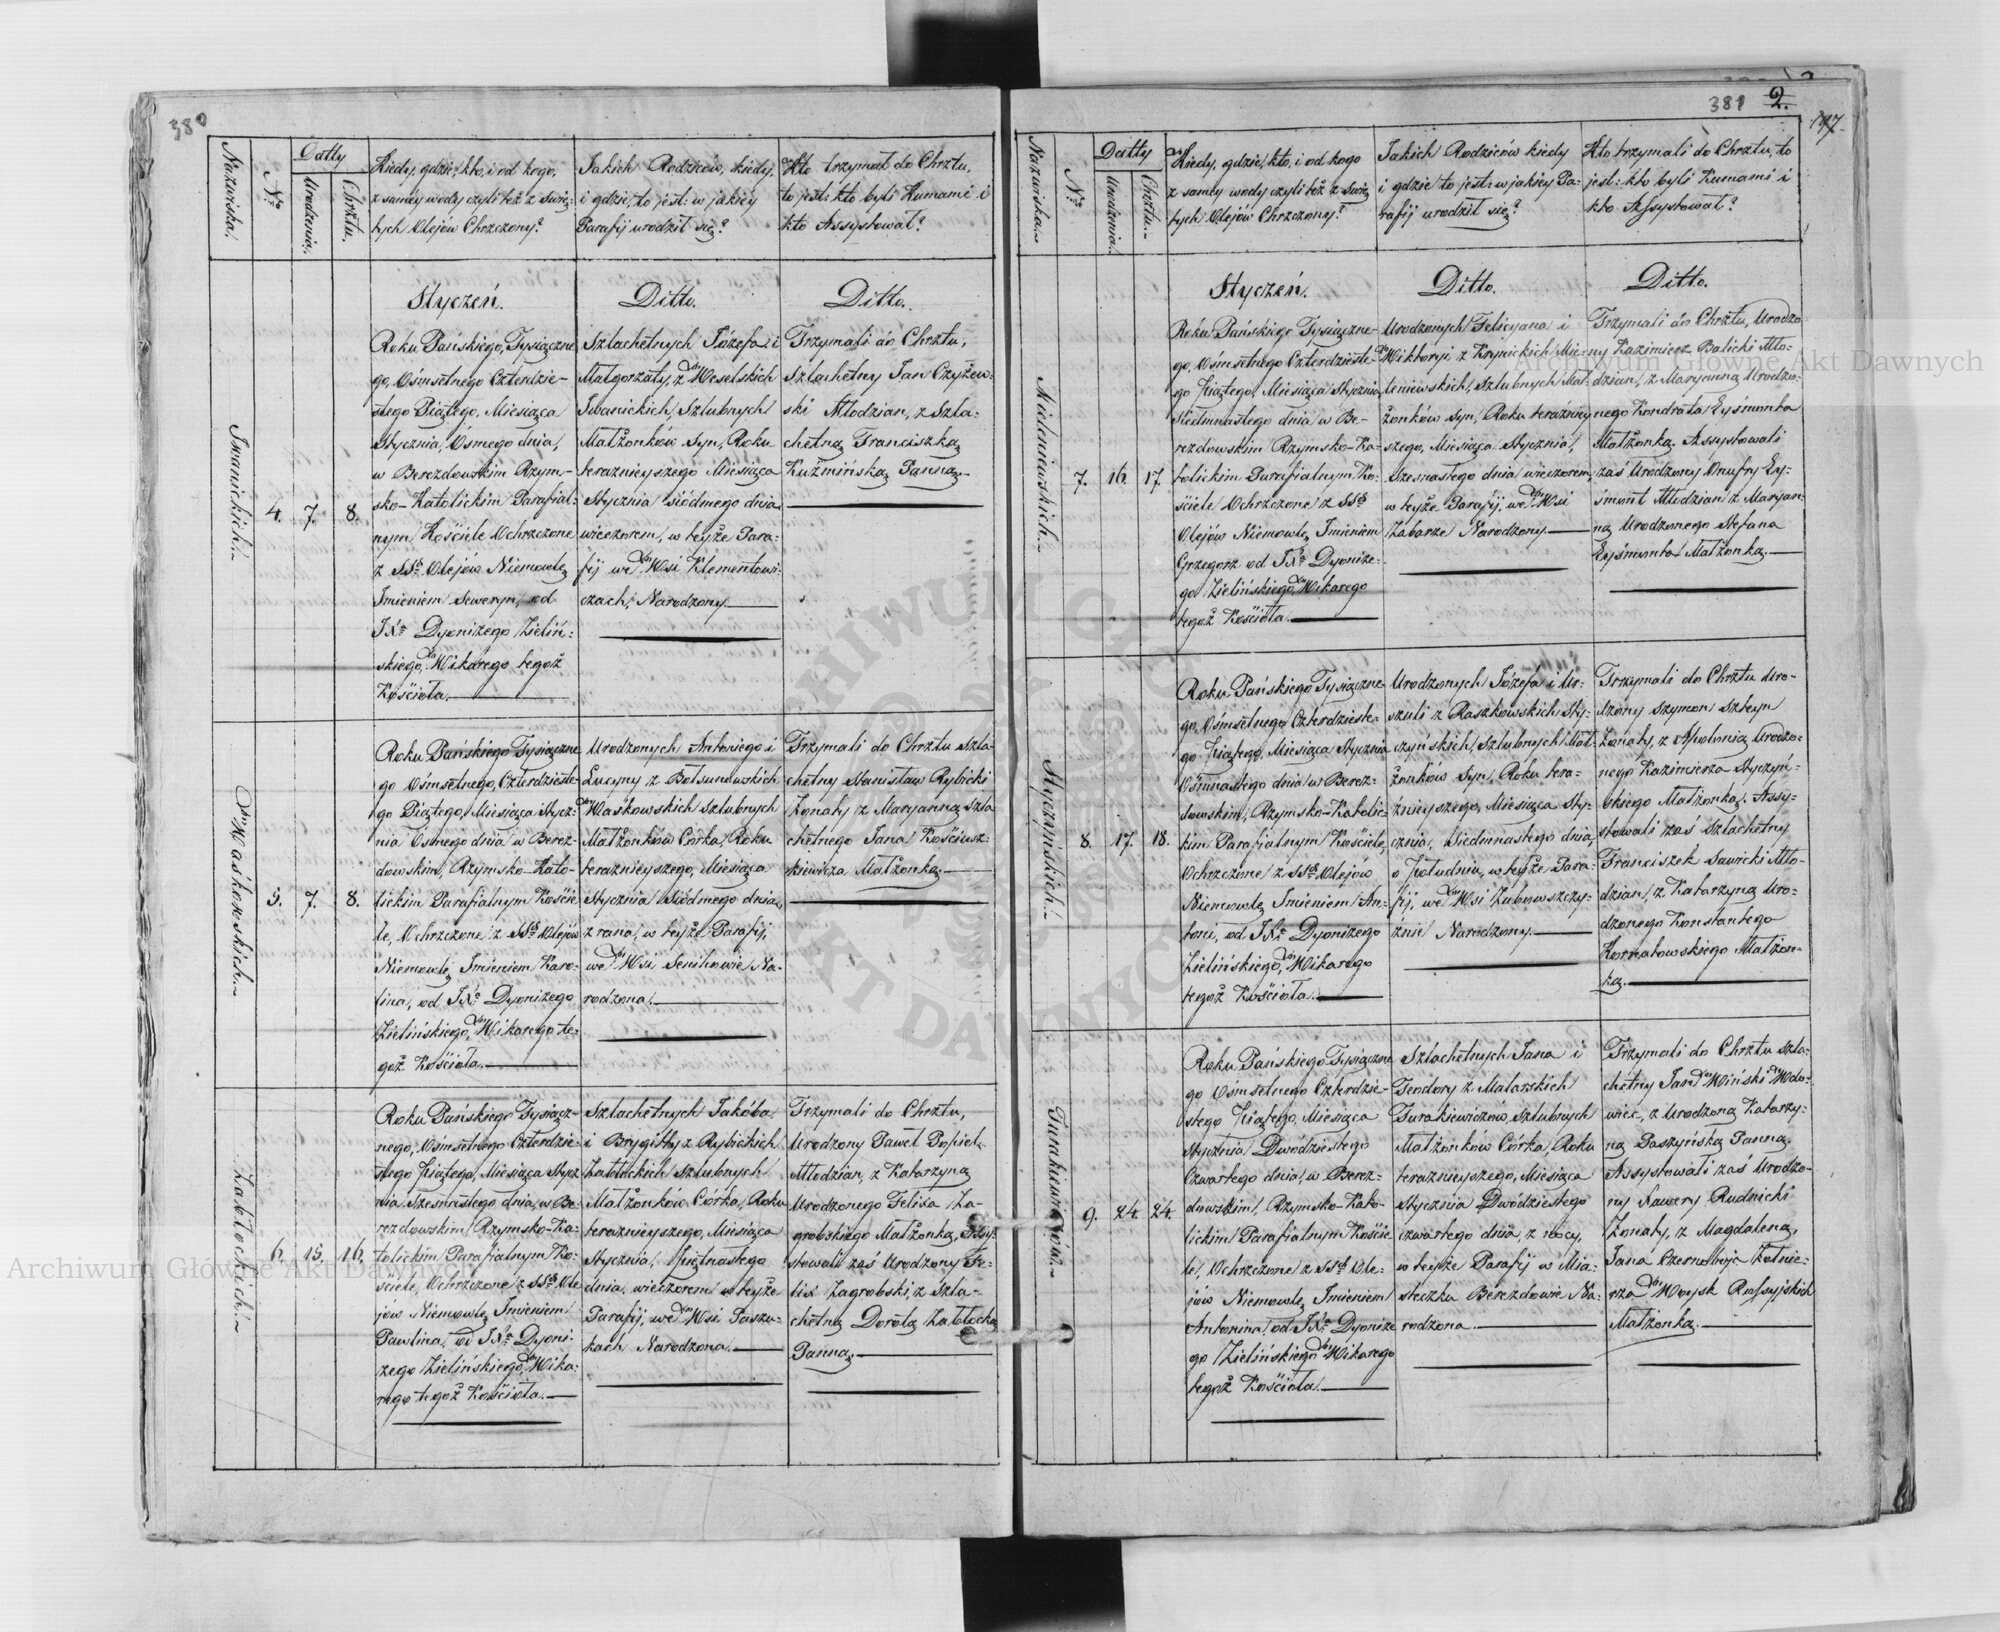 380
Nazwiska.
Nro
Datty
Urodzenia.
Chrztu.
Kiedy, gdzie, kto, i od kogo,
z samey wody czyli też z świę-
tych Olejów Chrzczony?
Jakich Rodziców, kiedy,
i gdzie, to jest: w jakiey
Parafij urodził się?
Kto trzymał do Chrztu,
to jest: kto byli Kumami i
kto Assystował?
Styczeń.
Ditto.
Ditto.
Iwanickich.
4.
7.
8.
Roku Pańskiego, Tysiączne
go, Ośmsetnego Czterdzie-
stego Piątego, Miesiąca
Stycznia, Ósmego dnia,
w Berezdowskim Rzym-
sko-Katolickim Parafial-
nym Kościele Ochrzczone
z SSch Olejów Niemowlę
Imieniem Seweryn, od
JXa Dyonizego Zieliń-
skiego, Wikarego tegoż
Kościoła.
Szlachetnych Józefa i
Małgorzaty, z Weselskich
Iwanickich Szlubnych
Małżonków Syn, Roku
teraznieyszego Miesiąca
Stycznia siódmego dnia
wieczorem, w teyże Para-
fij we Wsi Klementowi-
czach, Narodzony.
Trzymali do Chrztu,
Szlachetny Jan Czyżew-
ski Młodzian, z Szla-
chetną Franciszką
Kuźmińską Panną.
Waśkowskich.
5.
7.
8.
Roku Pańskiego Tysiączne
go Ośmsetnego, Czterdzieste-
go Piątego, Miesiąca Stycz-
nia Ósmego dnia w Berez-
dowskim, Rzymsko-Kato-
lickim Parafialnym Koście
le, Ochrzczone z SSch Olejów
Niemowlę Imieniem Karo-
lina, od JXa Dyonizego
Zielińskiego, Wikarego te-
goż Kościoła.
Urodzonych Antoniego i
Lucyny z Bołsunowskich
Waśkowskich Szlubnych
Małżonków Córka, Roku
teraznieyszego, Miesiąca
Stycznia Siódmego dnia,
z rana, w teyże Parafij,
we Wsi Senihowie Na-
rodzona.
Trzymali do Chrztu Szla
chetny Stanisław Rybicki
Żonaty z Maryanną Szla
chetnego Jana Kościusz-
kiewicza Małżonką.
Zabłockich.
6.
15.
16.
Roku Pańskiego Tysiącz-
nego, Ośmsetnego Czterdzie-
stego Piątego, Miesiąca Stycz
nia Szesnastego dnia, w Be-
rezdowskim Rzymsko-Ka-
tolickim Parafialnym Ko-
ściele, Ochrzczone z SSch Ole-
jów Niemowlę Imieniem
Pawlina, od JXa Dyoni-
zego Zielińskiego, Wika-
rego tegoż Kościoła.
Szlachetnych Jakóba
i Brygitty z Rybickich
Zabłockich Szlubnych
Małżonków Córka, Roku
teraznieyszego, Miesiąca
Stycznia, Piętnastego
dnia, wieczorem w teyże
Parafij, we Wsi Paszu-
kach Narodzona.
Trzymali do Chrztu,
Urodzony Paweł Popiel
Młodzian, z Katarzyną
Urodzonego Felixa Za-
grobskiego Małżonką, Assy-
stowali zaś Urodzony Fe-
lix Zagrobski, z Szla-
chetną Dorotą Zabłocką
Panną.
381 2.
197.
Nazwiska.
Nro
Datty
Urodzenia.
Chrztu.
Kiedy, gdzie, kto, i od kogo
z samey wody czyli też z świę-
tych Olejów Chrzczony?
Jakich Rodziców kiedy
i gdzie to jest: w jakiey Pa-
rafij urodził się?
Kto trzymali do Chrztu, to
jest: kto byli Kumami i
kto Assystował?
Styczeń.
Ditto.
Ditto.
Mieleniewskich.
7.
16.
17.
Roku Pańskiego Tysiączne-
go, Ośmsetnego Czterdzieste-
go Piątego, Miesiąca Stycznia
Siedmnastego dnia w Be-
rezdowskim Rzymsko-Ka-
tolickim Parafialnym Ko-
ściele Ochrzczone z SSch
Olejów Niemowlę Imieniem
Grzegorz od JXa Dyonize-
go Zielińskiego, Wikarego
tegoż Kościoła.
Urodzonych Felicyana i
Wiktoryi z Krynickich Mie-
leniewskich, Szlubnych Mał
żonków Syn, Roku teraźniey
szego, Miesiąca Stycznia,
Szesnastego dnia wieczorem,
w teyże Parafij, we Wsi
Zabarze Narodzony.
Trzymali do Chrztu, Urodzo
ny Kazimierz Balicki Mło-
dzian, z Maryanną Urodzo-
nego Kondrata Łyśmonta
Małżonką. Assystowali
zaś Urodzony Onufry Ły-
śmont Młodzian z Maryan-
ną Urodzonego Stefana
Łyśmonta Małżonką.
Styczyńskich.
8.
17.
18.
Roku Pańskiego Tysiączne-
go, Ośmsetnego Czterdzieste-
go Piątego, Miesiąca Stycznia
Ośmnastego dnia w Berez-
dowskim, Rzymsko-Katolic-
kim Parafialnym Kościele,
Ochrzczone z SSch Olejów
Niemowlę Imieniem An-
toni, od JXa Dyonizego
Zielińskiego, Wikarego
tegoż Kościoła.
Urodzonych Józefa i Ur-
szuli z Raszkowskich Sty-
czyńskich, Szlubnych Mał-
żonków Syn, Roku tera-
źnieyszego, Miesiąca Sty-
cznia, Siedmnastego dnia,
o Południu, w teyże Para-
fij, we Wsi Zubowszczy-
źnie Narodzony.
Trzymali do Chrztu Uro-
dzony Szymon Szteyn
Żonaty, z Apolonią Urodzo-
nego Kazimierza Styczyń-
skiego Małżonką. Assy-
stowali zaś Szlachetny
Franciszek Sawicki Mło-
dzian, z Katarzyną Uro-
dzonego Konstantego
Kornatowskiego Małżon-
ką.
Turakiewiczów.
9.
24.
24.
Roku Pańskiego Tysiączne
go Ośmsetnego Czterdzie-
stego Piątego, Miesiąca
Stycznia Dwódziestego
Czwartego dnia, w Berez-
dowskim, Rzymsko-Kato-
lickim Parafialnym Koście
le, Ochrzczone z SSch Ole-
jów Niemowlę Imieniem
Antonina, od JXa Dyonize
go Zielińskiego Wikarego
tegoż Kościoła.
Szlachetnych Jana i
Teodory z Malarskich
Turakiewiczów, Szlubnych
Małżonków Córka, Roku
teraznieyszego, Miesiąca
Stycznia Dwódziestego
czwartego dnia, z nocy,
w teyże Parafij w Mia-
steczku Berezdowie Na-
rodzona.
Trzymali do Chrztu Szla-
chetny Jan Wiński Wdo-
wiec, z Urodzoną Katarzy-
ną Paszyńską Panną,
Assystowali zaś Urodzo-
ny Xawery Rudnicki
Żonaty, z Magdaleną,
Jana Czernobyja Żołnie-
rza Woysk Rossyjskich
Małżonką.
Archiwum Główne Akt Dawnych
Archiwum Główne Akt Dawnych